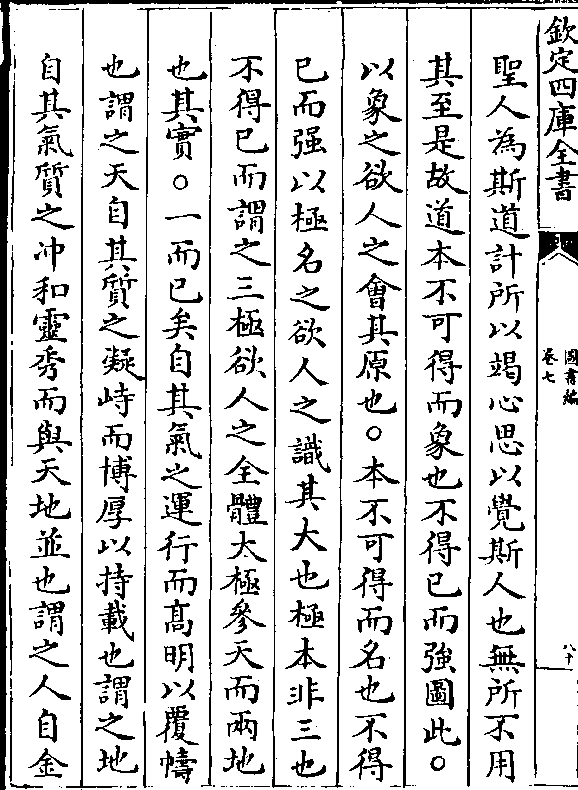 欽定四庫全書
圖書編
卷七
八十
聖人為斯道計所以竭心思以覺斯人也無所不用
其至是故道本不可得而象也不得已而強圖此○
以象之欲人之會其原也○本不可得而名也不得
已而强以極名之欲人之識其大也極本非三也
不得已而謂之三極欲人之全體太極參天而兩地
也其實○一而已矣自其氣之運行而高明以覆幬
也謂之天自其質之凝峙而博厚以持載也謂之地
自其氣質之冲和靈秀而與天地並也謂之人自金